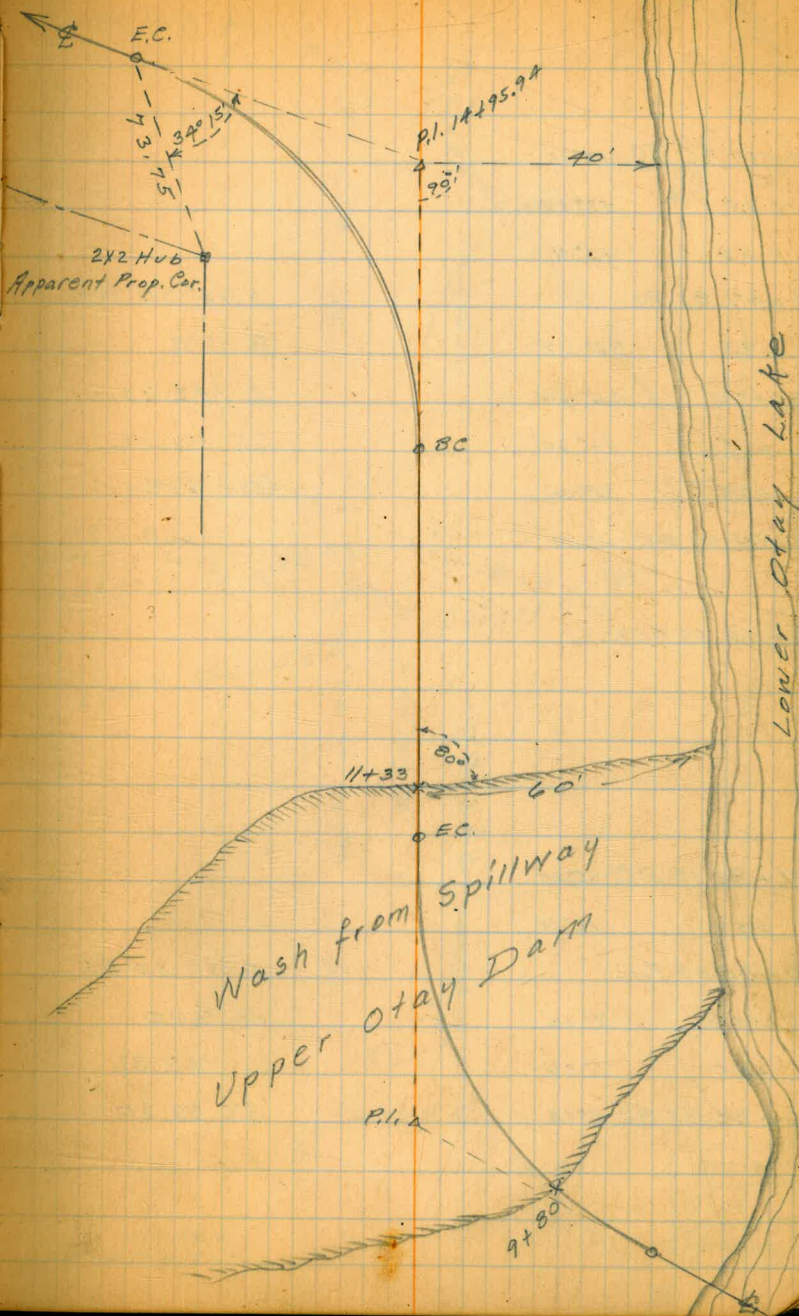 ℄
E.C.
P.I. 14+95.94
34° 15'
73.75
40'
90°
2X2 Hub
Apparent Prop. Cor.
BC
Lower Otay Lake
80°
11+33
60'
E.C.
Wash from Spillway
Upper Otay Dam
P.I.
9+80
℄